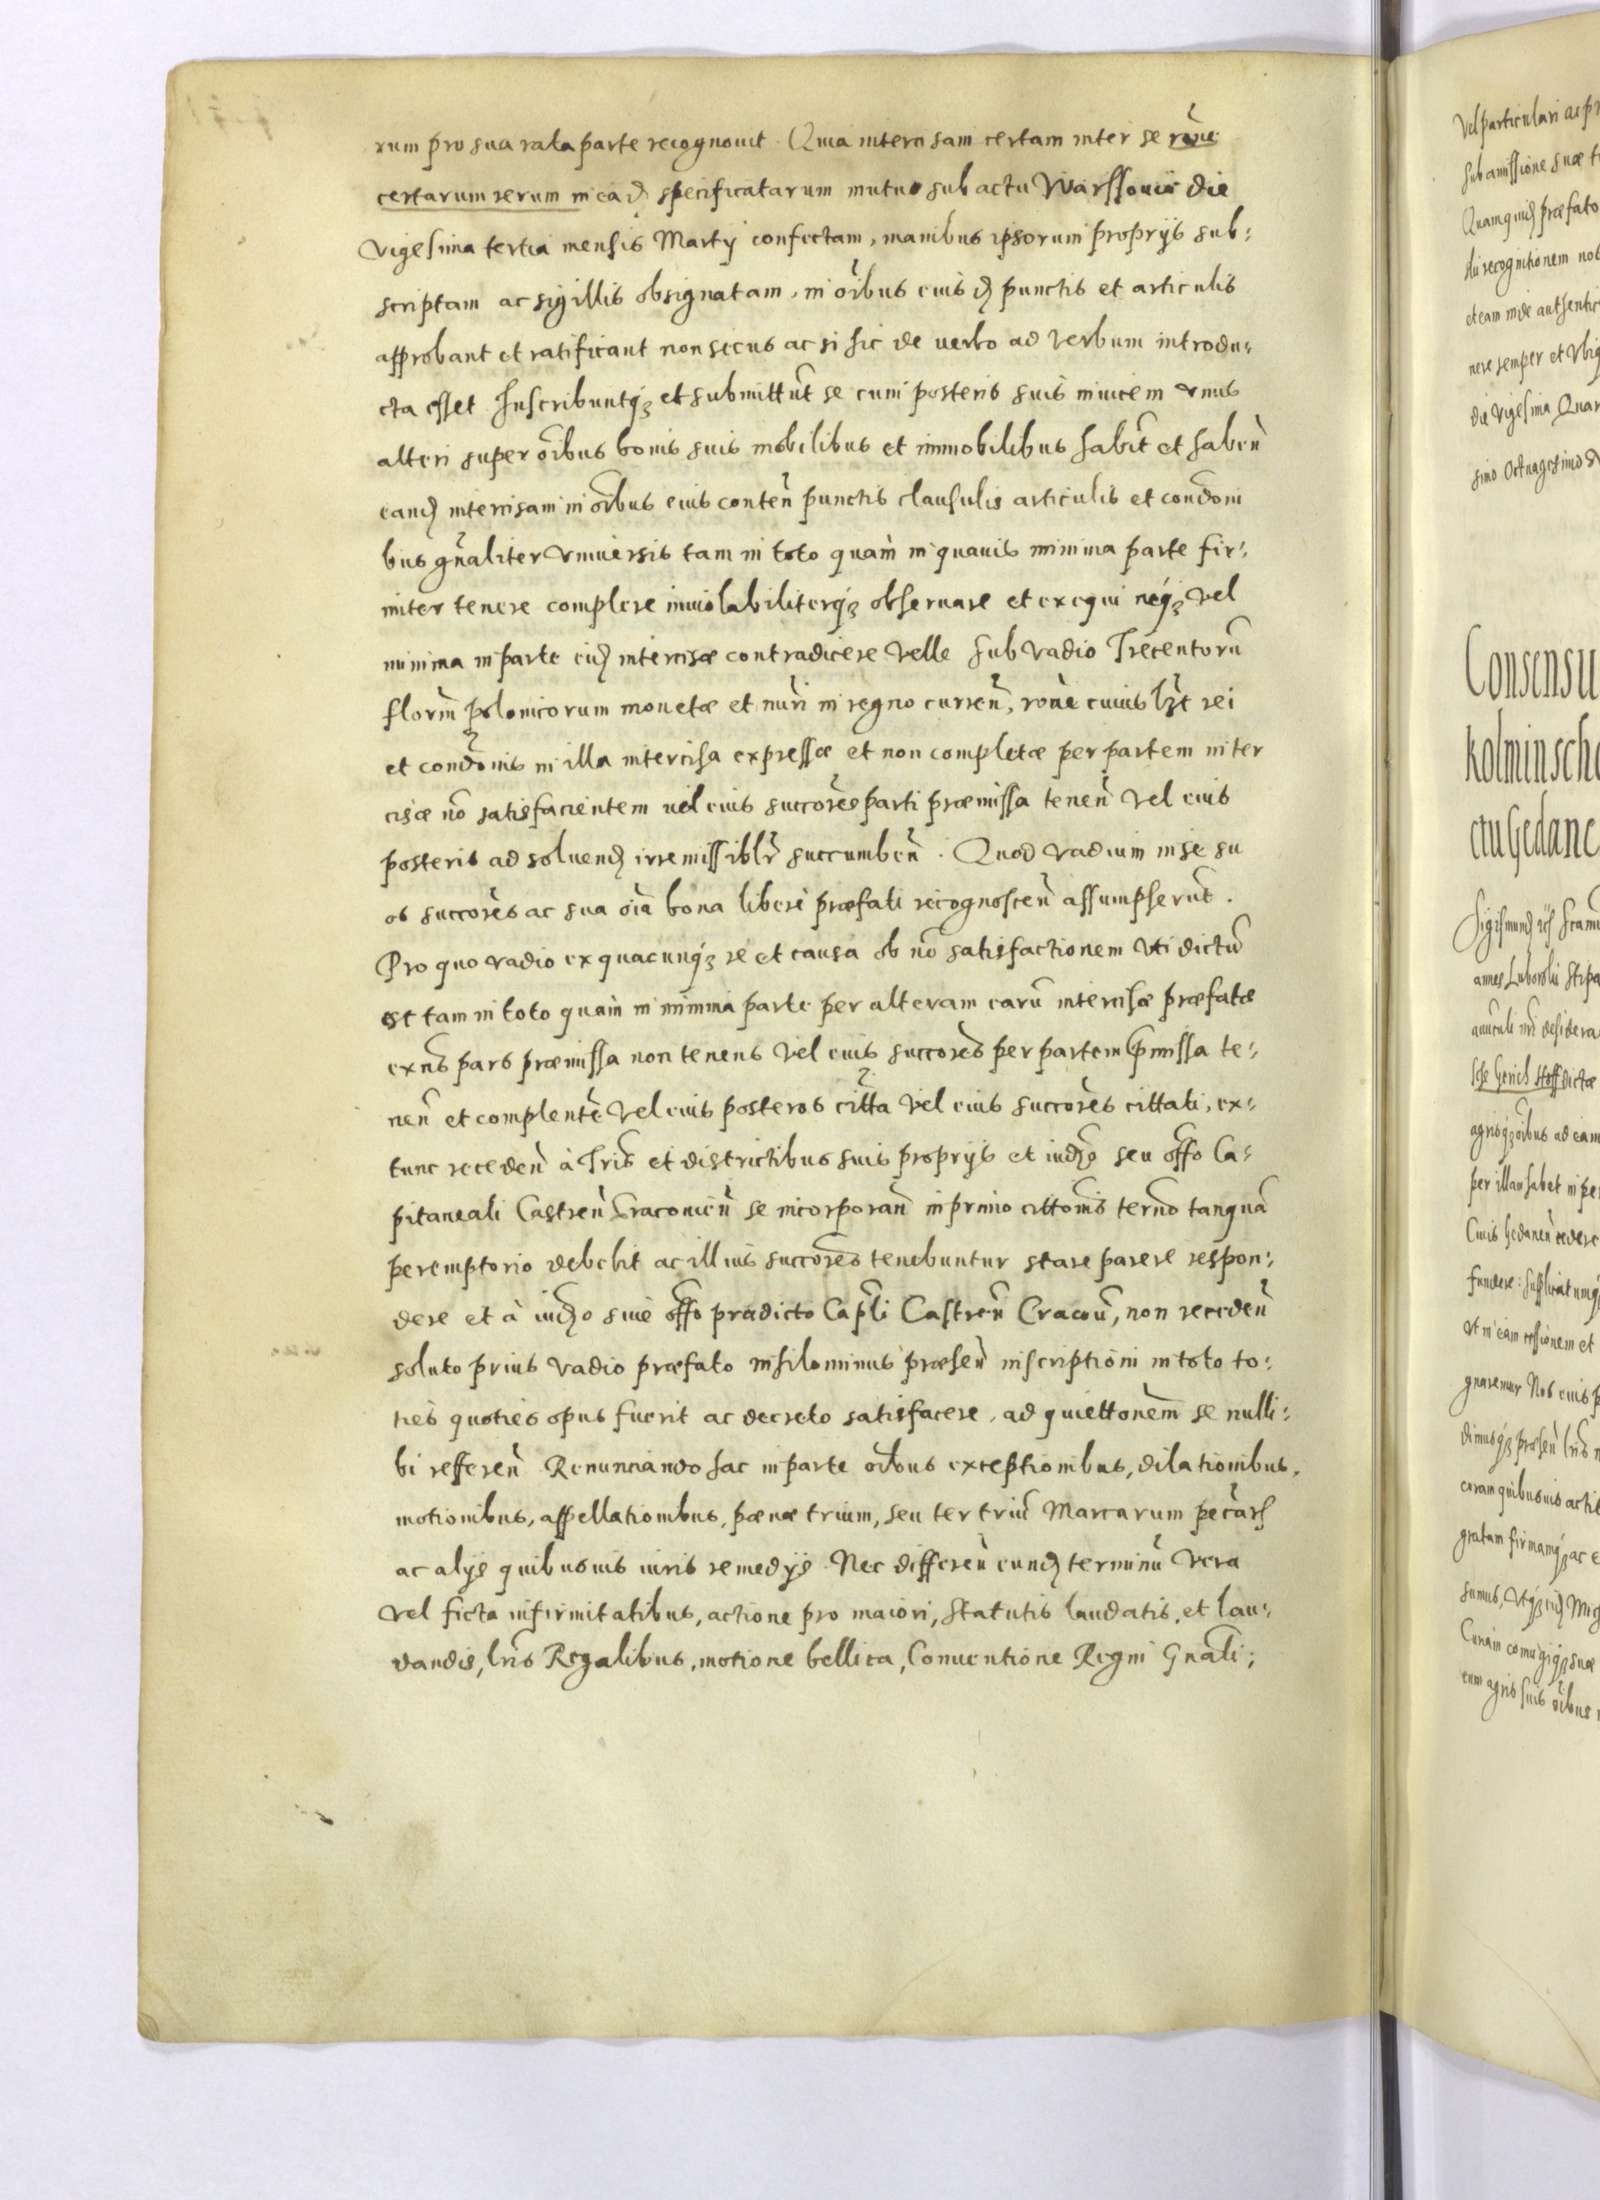 rum pro sua rata parte recognovit. Quia intercisam certam inter se rône
certarum rerum in eadȝ specificatarum mutuo sub actu Warssoviæ die
Vigesima tertia mensis Martÿ confectam, manibus ipsorum proprÿs sub:
scriptam ac sigillis obsignatam, in oîbus eiusdȝ punctis et articulis
approbant et ratificant non secus ac si hic de verbo ad verbum introdu:
cta esset. Inscribuntqȝ et submittũt se cum posteris suis invicem vnus
alteri super oîbus bonis suis mobilibus et immobilibus habit̃ et habeñ
eandȝ intercisam in oîbus eius conteñ punctis clausulis articulis et condoni
bus gñaliter vniversis tam in toto quàm in quavis minima parte fir:
miter tenere complere inviolabiliterqȝ observare et exequi neqȝ vel
minima in parte eidȝ intercisæ contradicere velle sub vadio Trecentorũ
florin̄ polonicorum monetæ et nūri in regno curreñ, rône cuiuslȝt rei
et condonis in illa intercisa expressæ et non completæ per partem inter
cisæ nō satisfacientem vel eius succōres parti præmissa teneñ vel eius
posteris ad solvendȝ irremissiblr̃ succumbeñ. Quod vadium in se su
os succōres ac sua oīa bona liberè præfati recognosceñ assumpserũt.
Pro quo vadio ex quacunqȝ re et causa ob nō satisfactionem vti dictū
est tam in toto quàm in minima parte per alteram earū intercisæ præfatæ
exñs pars præmissa non tenens vel eius succōres per partem pmissa te:
neñ et complentē vel eius posteros citta vel eius succōres cittati, ex:
tunc recedeñ à Tris et districtibus suis proprÿs et iudȝo seu offo Ca:
pitaneali Castreñ Cracovieñ se incorporañ in primo cittonis termo tanquā
peremptorio debebit ac illius succōres tenebuntur stare parere respon:
dere et à iudȝo sive offo prædicto Capli Castreñ Cracov̄, non recedeñ
soluto prius vadio præfato nihilominus præseñ inscriptioni in toto to:
ties quoties opus fuerit ac decreto satisfacere, ad quiettonem se nulli:
bi reffereñ Renunciando hac in parte oîbus exceptionibus, dilationibus,
motionibus, appellationibus, pœnæ trium, seu ter triū Marcarum pecarȝ
ac alÿs quibusvis iuris remedÿs. Nec differeñ eundȝ terminū vera
vel ficta infirmitatibus, actione pro maiori, statutis laudatis, et lau:
dandis, lris Regalibus, motione bellica, Conventione Regni Gnāli;
Vel particulari ac
sub amissione suæ
Quamquidȝ præfato
recognitionem
et eam inde
nere semper et
die Vigesima
simo Octuagesimo
Consensu
desidera
dictæ
ad eam
per illam habet in
Cuius Gedaneñ cedere
fundere:
vt in eam cessionem et
gnaremur Nos eius
dimusqȝ præseñ lris
coram quibusvis
gratam firmamqȝ ac
sumus,
cum agris suis oîbus